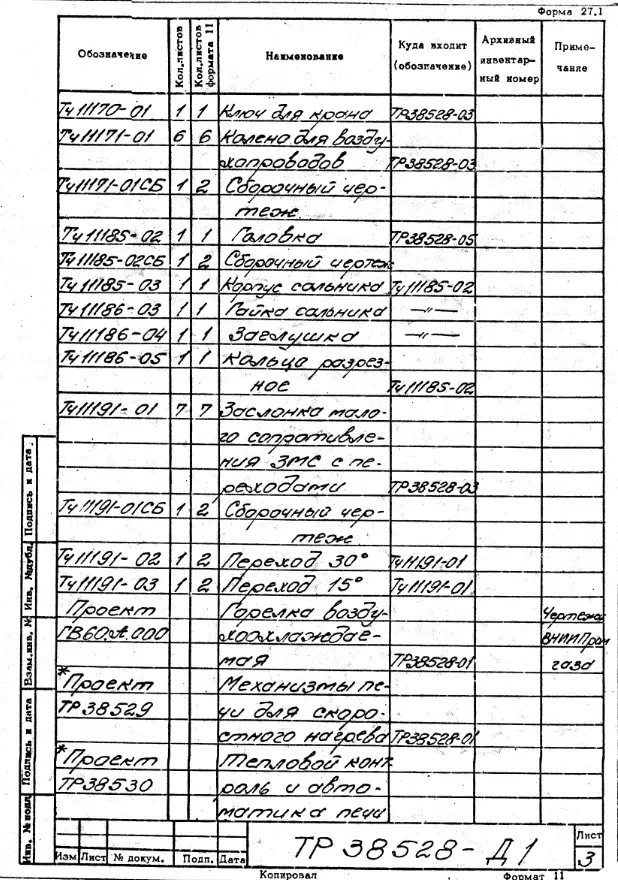 Форма 27.1
Обозначение Кол.листов Кол.листов формата 11 Наименование Куда входит (обозначение) Архивный инвентарный номер Примечание
Тч11170-01 1 1 Ключ для крана ТР38528-03
Тч11171-01 6 6 Колено для возду-
хопроводов ТР38528-03
Тч11171-01СБ 1 2 Сборочный чер-
теж.
Тч11185-02 1 1 Головка ТР38528-05
Тч11185-02СБ 1 2 Сборочный чертеж
Тч11185-03 1 1 Корпус сальника Тч11185-02
Тч11186-03 1 1 Гайка сальника —"—
Тч11186-04 1 1 Заглушка —"—
Тч11186-05 1 1 Кольцо разрез-
ное Тч11185-02
Тч11191-01 7 7 Заслонка мало-
го сопротивле-
ния ЗМС с пе-
реходами ТР38528-03
Тч11191-01СБ 1 2 Сборочный чер-
теж
Тч11191-02 1 2 Переход 30° Тч11191-01
Тч11191-03 1 2 Переход 15° Тч11191-01
Проект Горелка возду- Чертежи
ГВ60 .000 хоохлаждае- ВНИИПром
мая ТР38528-01 газа
*Проект Механизмы пе-
ТР38529 чи для скоро-
стного нагрева ТР38528-01
*Проект Тепловой конт
ТР38530 роль и авто-
матика печи
Подпись и дата.
Инв. №дубл.
Взам.инв. №
Подпись и дата
Инв. № подл.
Изм Лист № докум. Подп. Дата
ТР 38528-Д1
Лист
3
Копировал Формат 11